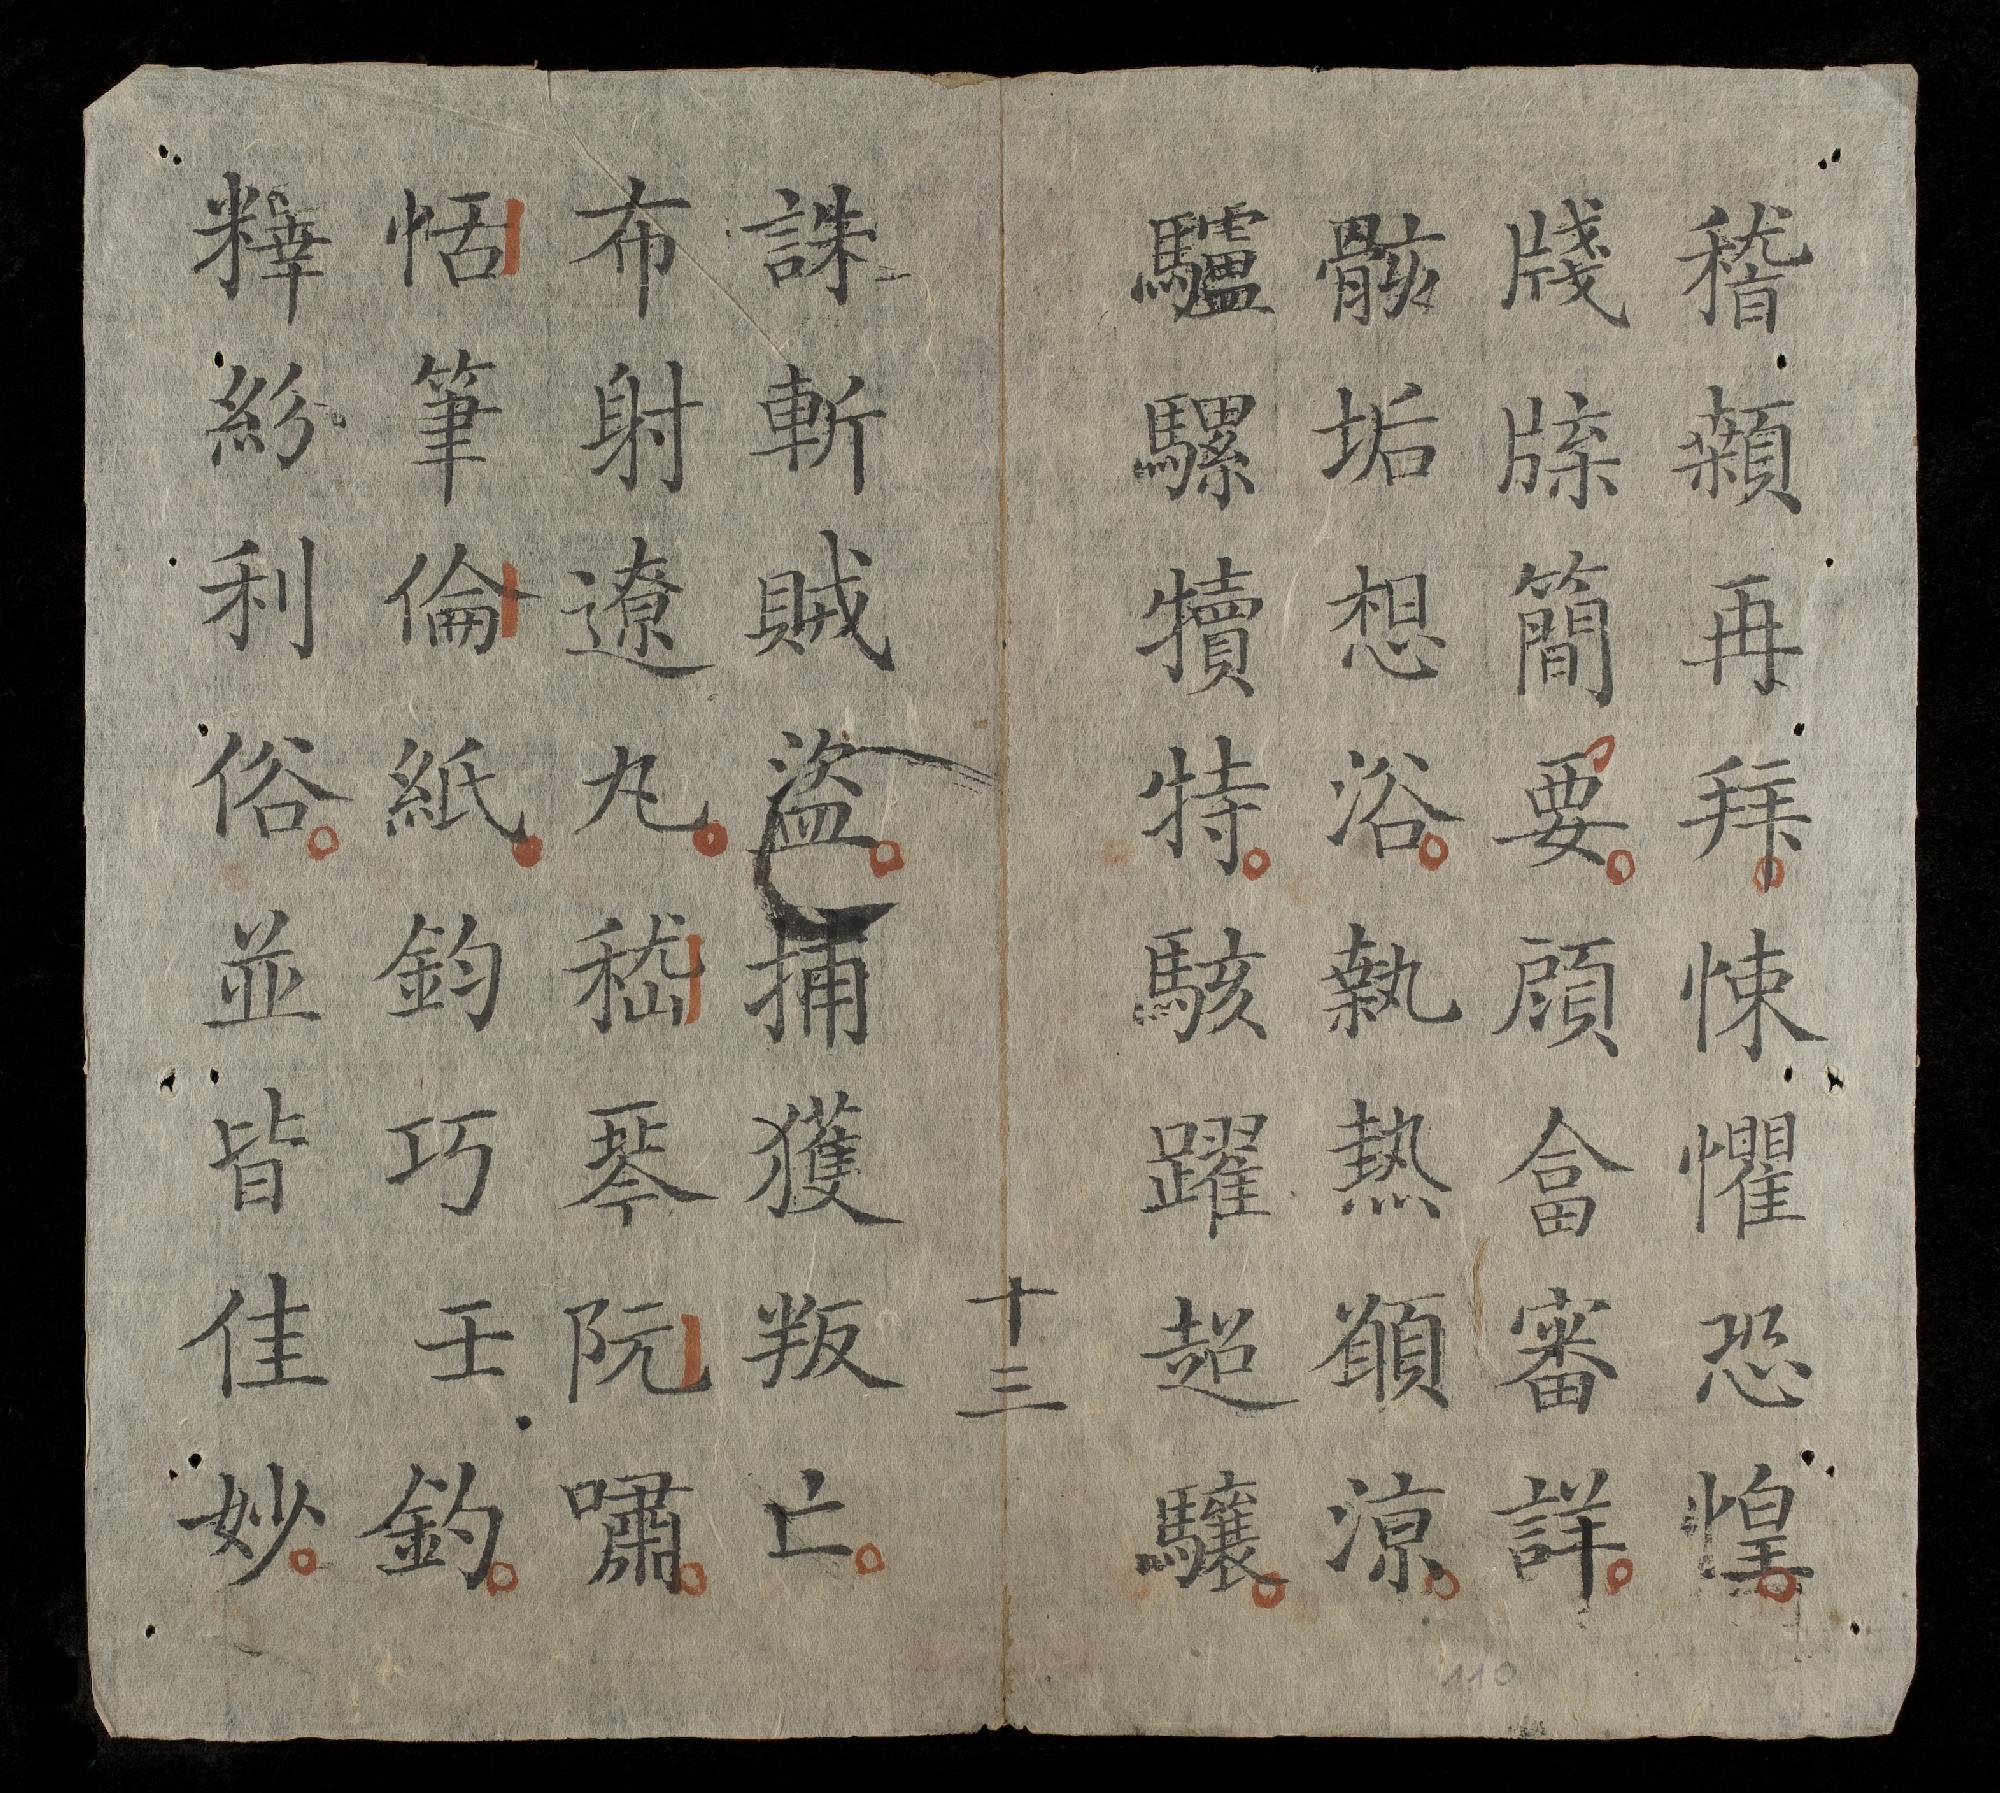 稽顙再拜悚懼恐惶
牋牒簡要顧畣審詳
骸垢想浴執熱願涼
驢騾犢特駭躍超驤
十三
誅斬賊盜捕獲叛亡
布射遼丸嵇琴阮嘯
恬筆倫紙鈞巧壬釣
釋紛利俗並皆佳妙
110